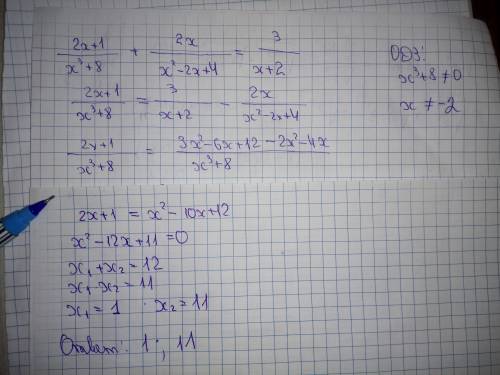 (2x+1)/(x³+8) + 2x/(x²-2x+4) = 3/(x+2)
ОДЗ:
x³+8 ≠ 0
x ≠ -2
(2x+1)/(x³+8) = 3/(x+2) - 2x/(x²-2x+4)
(2x+1)/(x³+8) = (3x²-6x+12-2x²-4x)/(x³+8)
2x+1 = x²-10x+12
x²-12x+11=0
x₁+x₂=12
x₁·x₂=11
x₁=1 x₂=11
Ответ: 1; 11